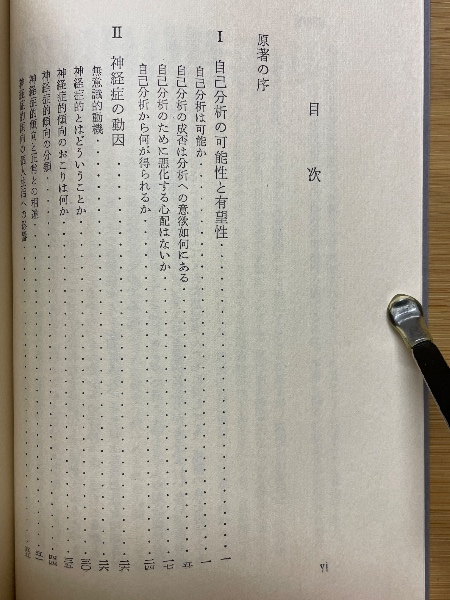 目次
原著の序
I 自己分析の可能性と有望性 一
自己分析は可能か 一
自己分析の成否は分析への意欲如何にある
自己分析のために悪化する心配はないか
自己分析から何が得られるか
II 神経症の動因
無意識的動機
神経症的とはどういうことか 三〇
神経症的傾向のおこりは何か
神経症的傾向の分類
神経症的傾向と正常との相違
神経症的傾向の個人生活への影響
vi